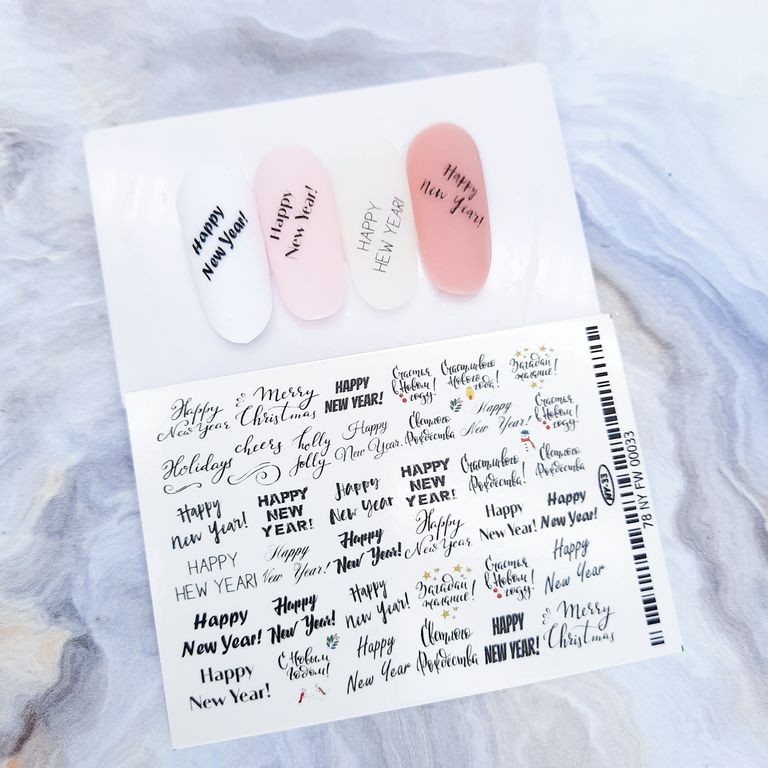 Happy
New Year!
Happy
New Year!
HAPPY
HEW YEAR!
Happy
New Year!
Happy
New Year
Merry
Christmas
HAPPY
NEW YEAR!
Счастья
в Новом
году!
Счастливого
Нового
года!
Загадай
желание!
Holidays
cheers
holly
jolly
Happy
New Year.
Светлого
Рождества
Happy
New Year!
Счастья
в Новом
году!
Happy
New Year!
HAPPY
NEW
YEAR!
Happy
New Year
HAPPY
NEW
YEAR!
Счастливого
Рождества!
Светлого
Рождества
HAPPY
HEW YEAR!
Happy
New Year!
Happy
New Year!
Happy
New Year
Happy
New Year!
Happy
New Year!
Happy
New Year!
Happy
New Year!
Happy
New Year!
Загадай
желание!
Счастья
в Новом
году!
Happy
New Year
Happy
New Year!
С Новым
Годом!
Happy
New Year
Светлого
Рождества
HAPPY
NEW YEAR!
Merry
Christmas
78 NY FW 00033